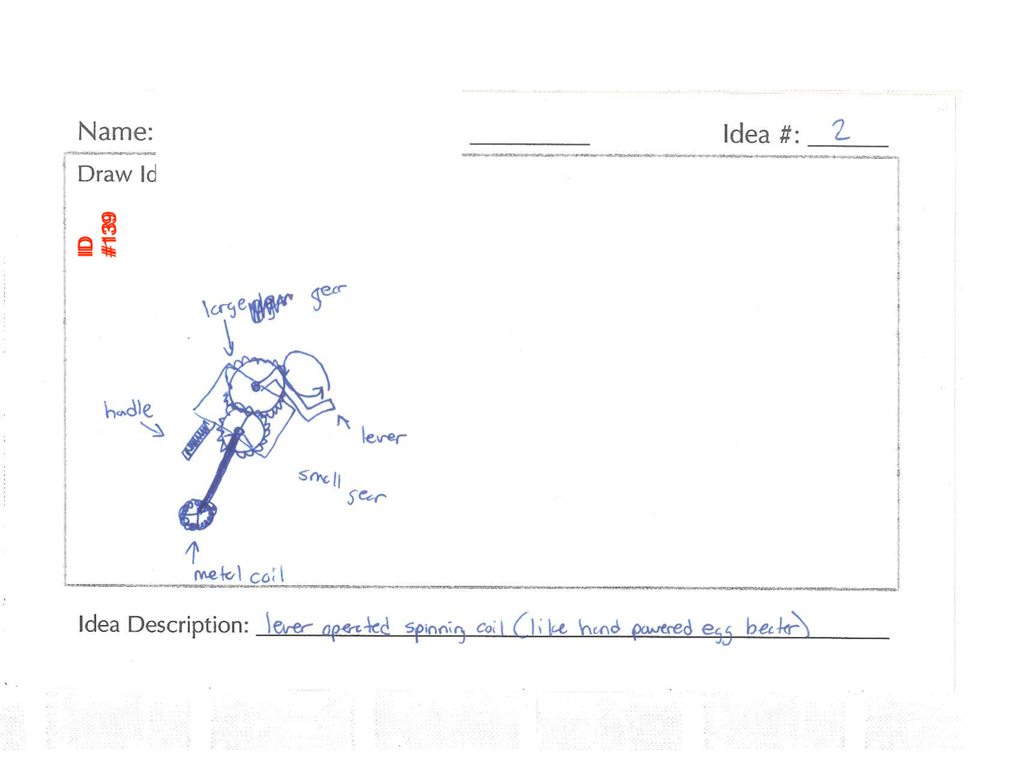 Name:
Idea #: 2
Draw Id
IID
#139
large gear
handle
lever
small
gear
metal coil
Idea Description: lever operated spinning coil (like hand powered egg beater)